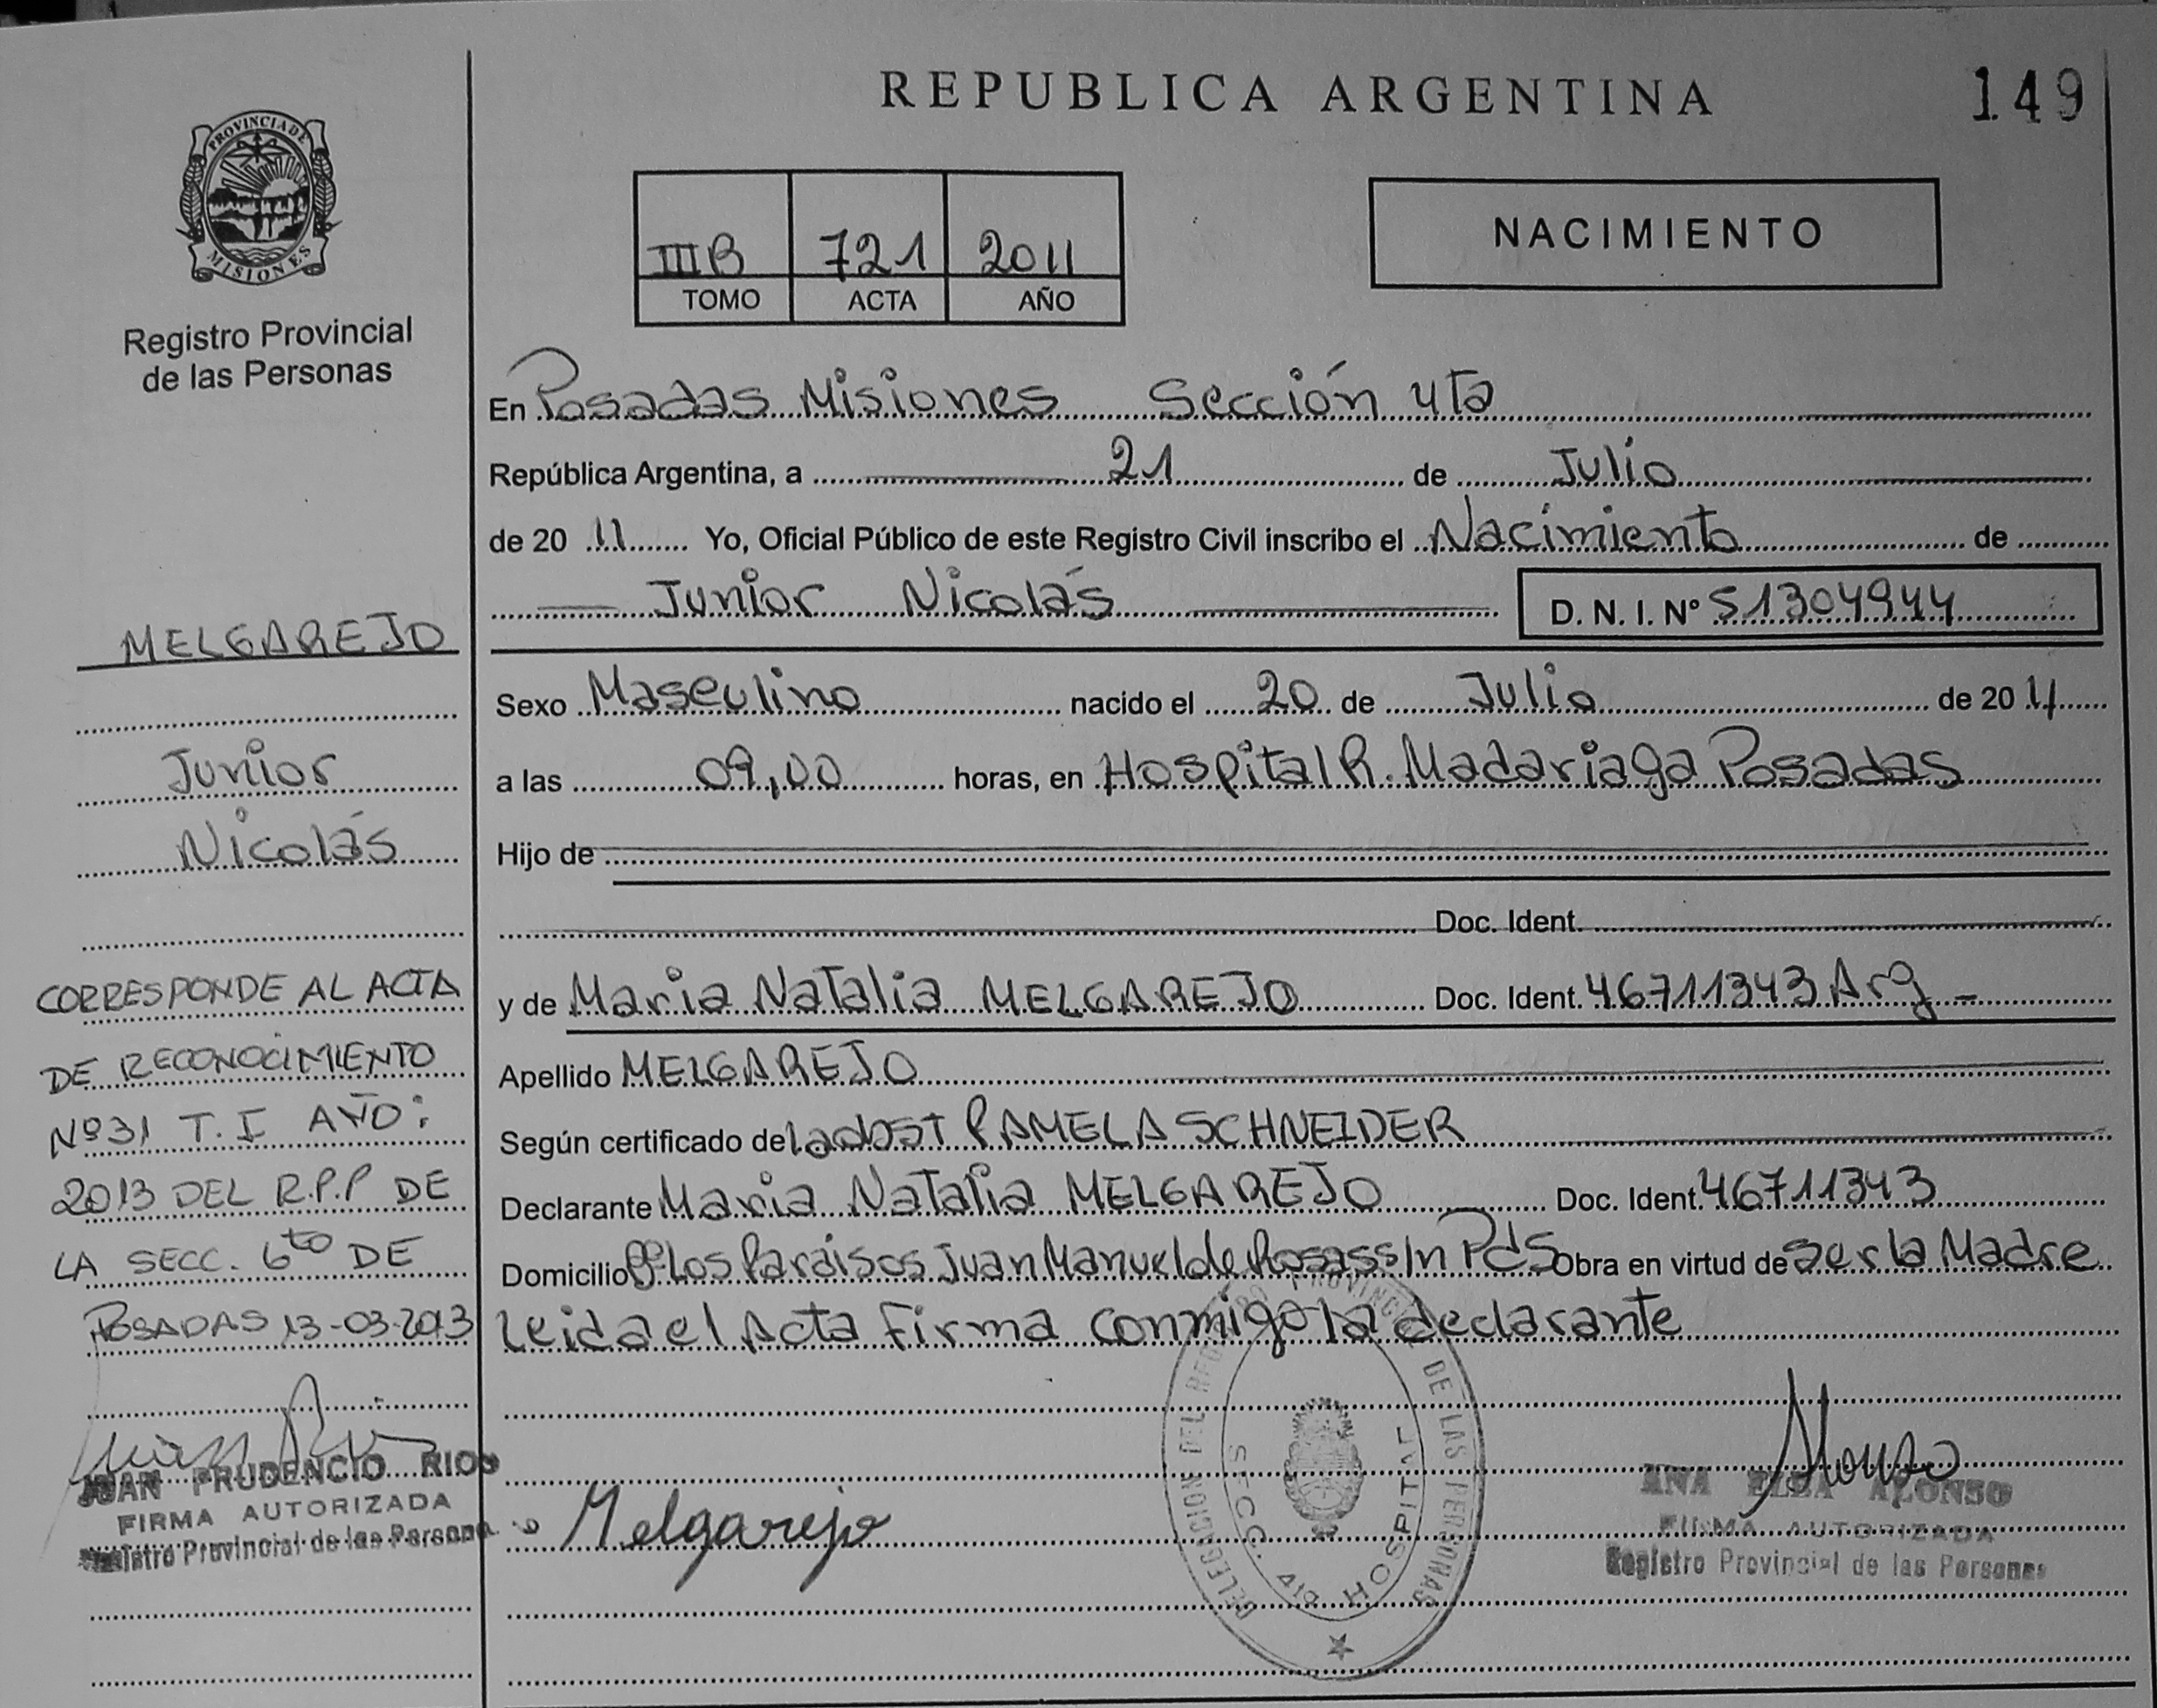 REPUBLICA ARGENTINA
149
PROVINCIA DE
MISIONES
Registro Provincial
de las Personas
III B 721 2011
TOMO ACTA AÑO
NACIMIENTO
En Posadas Misiones Sección 4ta
República Argentina, a 21 de Julio
de 20 11 Yo, Oficial Público de este Registro Civil inscribo el Nacimiento de
Junior Nicolás D. N. I. Nº 51304944
Sexo Masculino nacido el 20 de Julio de 20 11
a las 09,00 horas, en Hospital R. Madariaga Posadas
Hijo de
Doc. Ident.
y de Maria Natalia MELGAREJO Doc. Ident. 46711343 Arg -
Apellido MELGAREJO
Según certificado de la obst PAMELA SCHNEIDER
Declarante Maria Natalia MELGAREJO Doc. Ident. 46711343
Domicilio Bº Los Paraisos Juan Manuel de Rosas S/n Pdas Obra en virtud de ser la Madre
Leida el Acta Firma conmigo la declarante
MELGAREJO
Junior
Nicolás
CORRESPONDE AL ACTA
DE RECONOCIMIENTO
Nº 31 T. I AÑO:
2013 DEL R.P.P DE
LA SECC. 6to DE
POSADAS 13-03-2013
JUAN PRUDENCIO RIOS
FIRMA AUTORIZADA
Registro Provincial de las Personas
Melgarejo
DELEGACION DEL REGISTRO PROVINCIAL DE LAS PERSONAS
SECC. 4ta HOSPITAL
Alonso
ANA ELBA ALONSO
FIRMA AUTORIZADA
Registro Provincial de las Personas